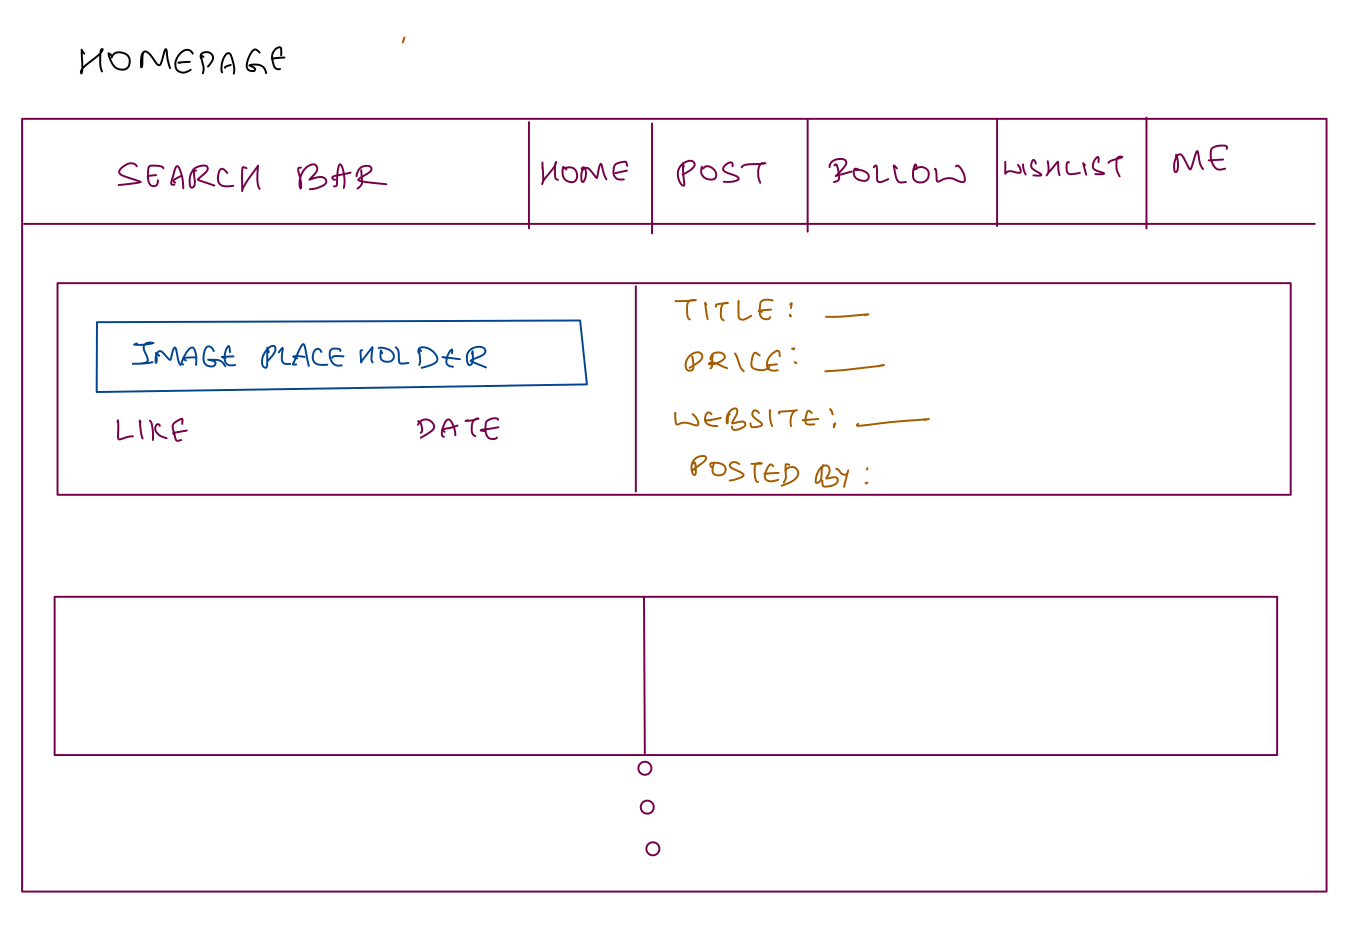 HOMEPAGE
SEARCH BAR HOME POST FOLLOW WISHLIST ME
IMAGE PLACE HOLDER
LIKE DATE
TITLE: __
PRICE: __
WEBSITE: __
POSTED BY: